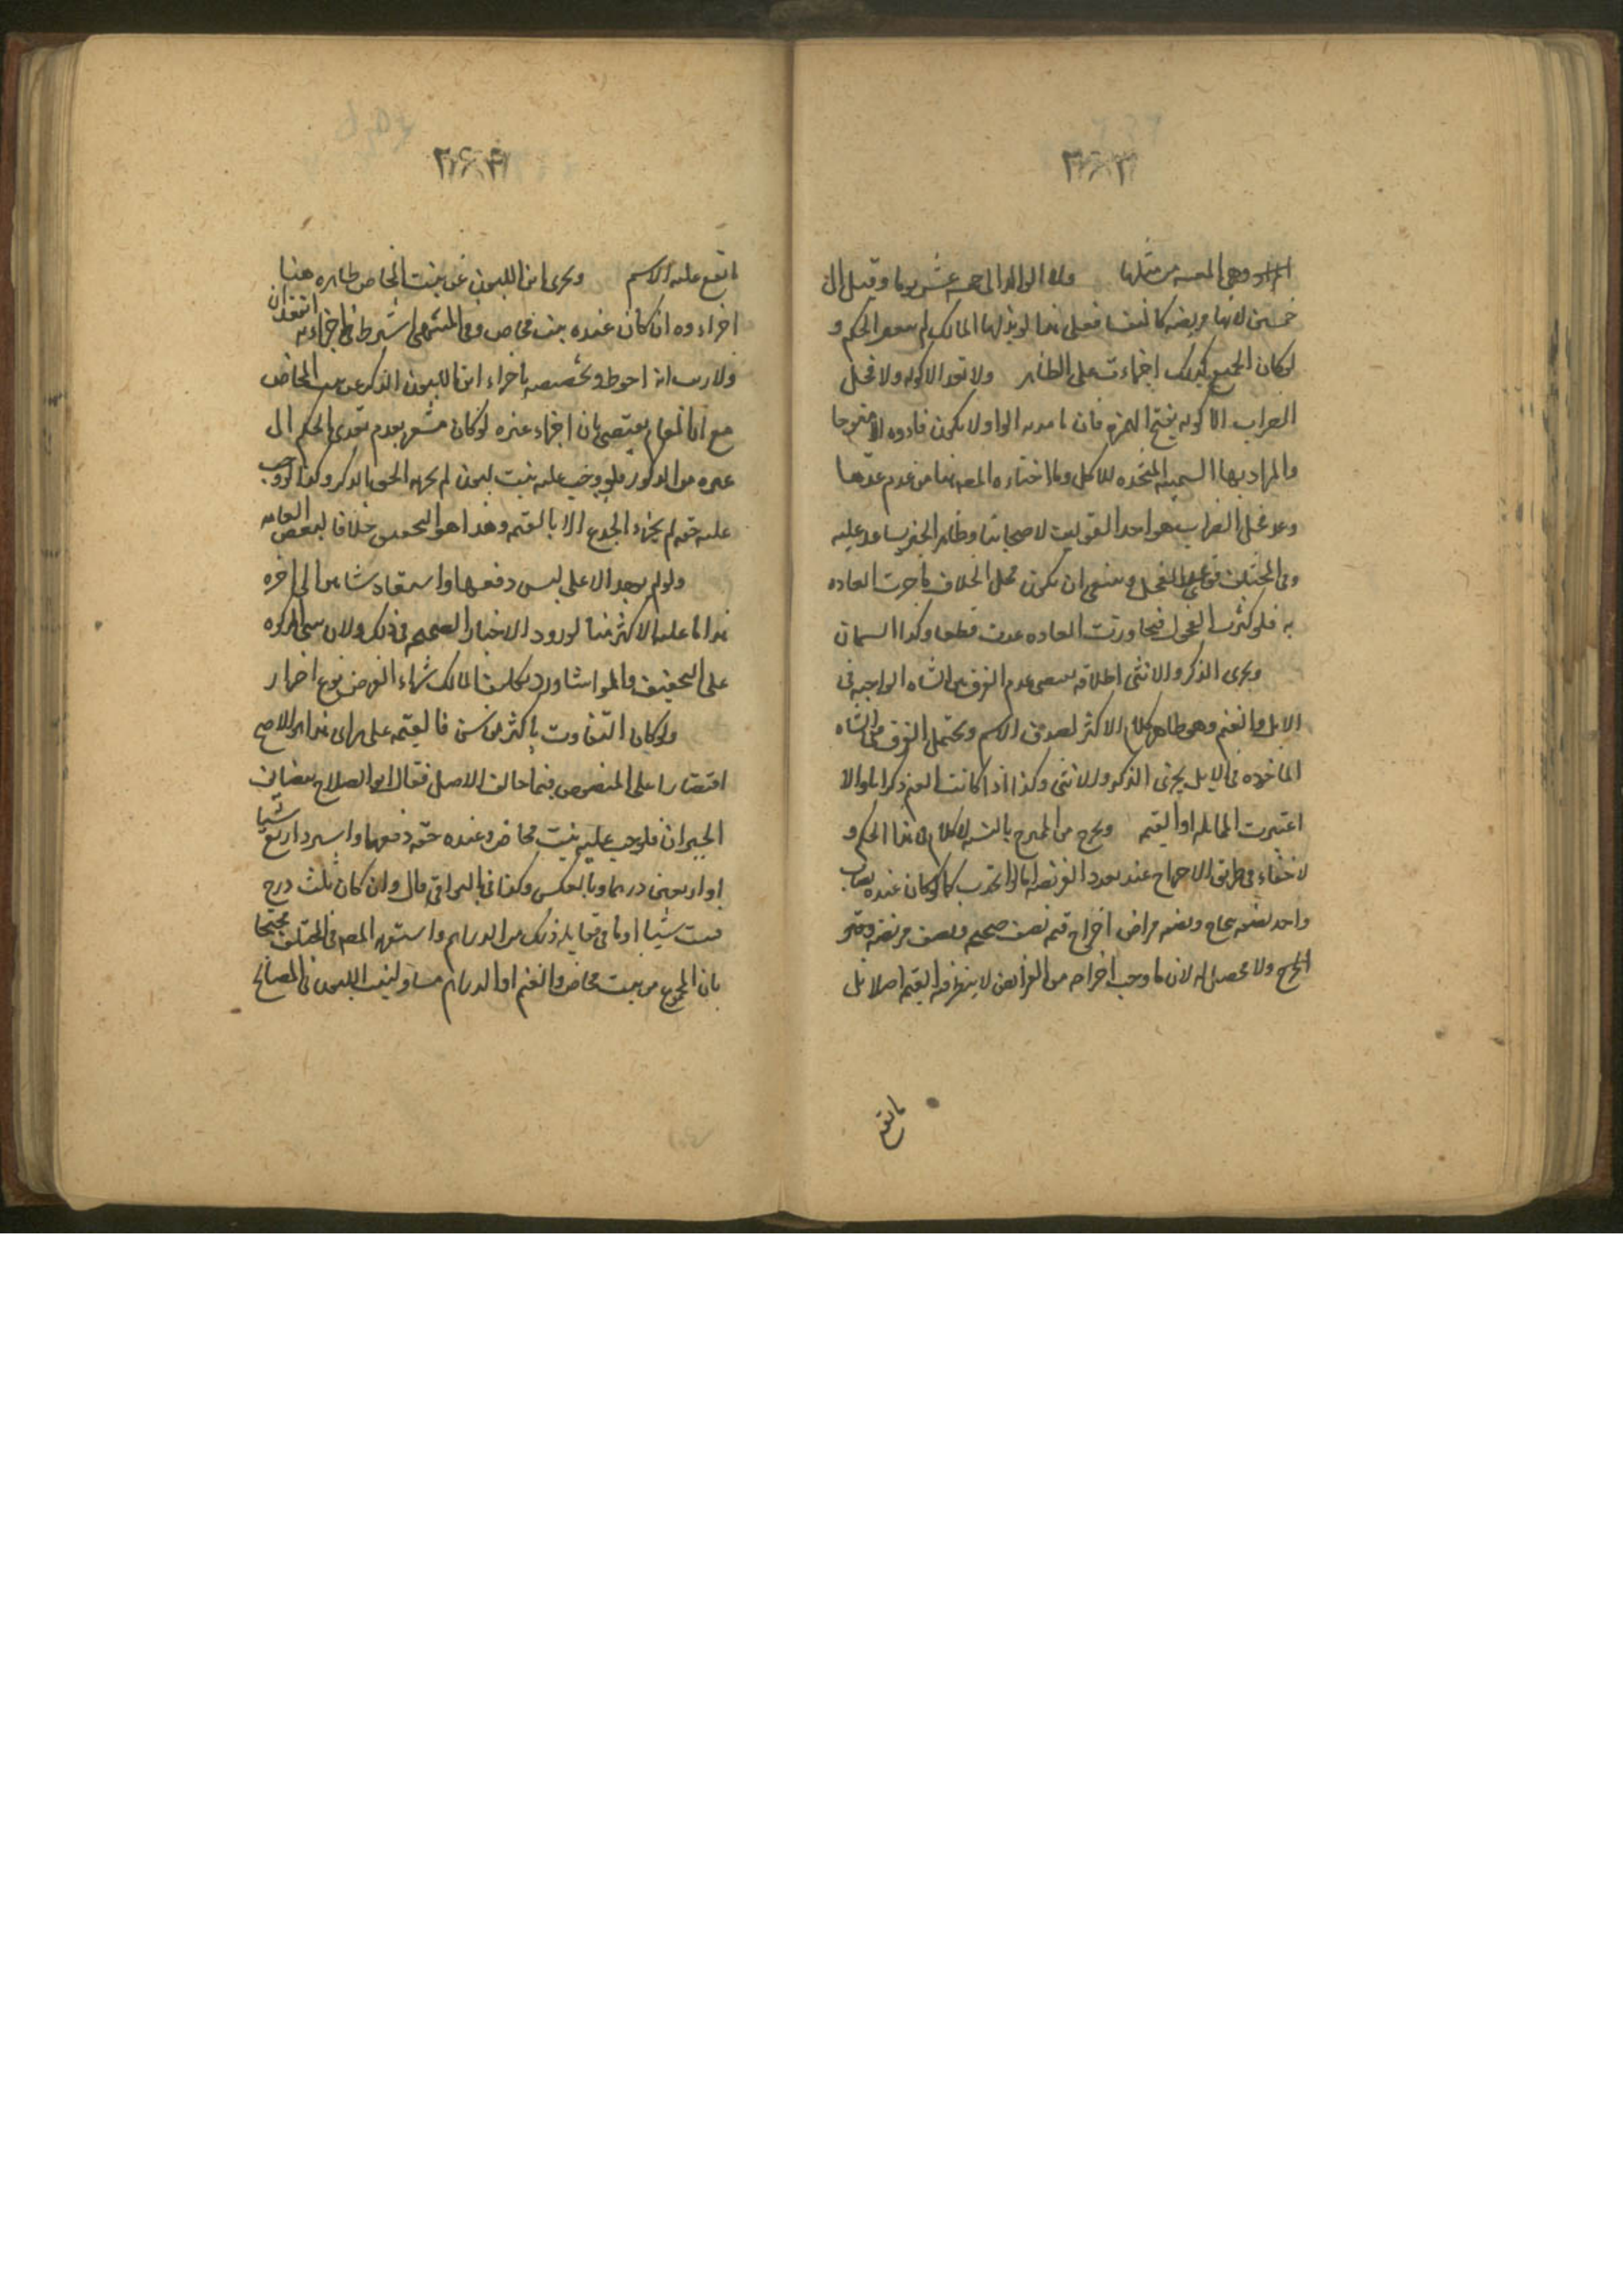 ٢٦٣
وهى المعيبه من مثلها ولا الوالد الى خمسة عشر يوما وقيل الى
خمسين لانها مريضه كالنفساء فعلى هذا لو بذلها المالك لم يتغير الحكم و
لو كان الجميع كذلك اجزءت على الظاهر ولا تعد الاكوله ولا فحل
الضراب الاكوله بفتح الهمزه فان ما مدته الواو لا يكون فاؤه الا مفتوحا
والمراد بها السمينه المتخذه للاكل وما اختاره المصه هنا من عدم عدها
وعد فحل الضراب هو احد القولين لاصحابنا وظاهر الخبر يساعد عليه
وفى المختلف الفحل وينبغى ان يكون محل الخلاف ما جرت العاده
به فلو كثرت الفحول فتجاوزت العاده عدت قطعا وكذا السمان
ويجزى الذكر والانثى اطلاقه يقتضى عدم الفرق بين الشاه الواجبه فى
الابل والغنم وهو ظاهر كلام الاكثر لصدق الاسم ويحتمل الفرق بين الشاه
الماخوذه فى الابل يجزى الذكر والانثى وكذا اذا كانت الغنم ذكرانا والا
اعتبرت المماثله او القيمه ويخرج من الممزوج بالنسبه لا كلام فى هذا الحكم و
لا خفاء فى طريق الاخراج عند تعدد الفريضه اما لو اتحدت كما لو كان عنده نصاب
واحد نصفه صحاح ونصفه مراض اخرج قيمه نصف صحيحه ونصف مريضه
ولا محصل له لان ما وجب اخراجه من الفرائض لا ينظر فيه القيمه اصلا بل
ما يقع
٢٦۴
ما يقع عليه الاسم ويجزى ابن اللبون عن بنت المخاض ظاهره هنا
اجزاءه وان كان عنده بنت مخاض وفى المنتهى اشترط فى اجزاءه فقدان
ولا ريب انه احوط وتخصيصه باجزاء ابن اللبون الذكر عن بنت المخاض
مع ان المقام يقتضى بيان اجزاء غيره لو كان مشعر بعدم تعدى الحكم الى
غيره من الذكور فلو وجب عليه بنت لبون لم يجزه الحق الذكر وكذا لو وجب
عليه حقه لم يجزء الجذع الا بالقيمه وهذا هو التحقيق خلافا لبعض العامه
ولو لم يوجد الا على ليس دفعها واستعاد شاتين الى اخره
هذا ما عليه الاكثر منا لورود الاخبار الصحيحه فى ذلك ولان مبنى الزكوه
على التخفيف والمواساه ورد تكليف المالك شراء الفرض نوع اضرار
ولو كان التفاوت باكثر من سن فالقيمه على راى هذا هو الاصح
اقتصارا على المنصوص فيما خالف الاصل فقال ابو الصلاح يضاعف
الجبران فلو وجب عليه بنت مخاض وعنده حقه دفعها واسترد اربع شياه
او اربعين درهما وبالعكس وكذا فى البواقى قال وان كان بثلث درج
فست شياه او ما فى مقابله ذلك من الدراهم واستقربه المصه فى المختلف محتجا
بان المجموع من بنت مخاض والغنم او الدراهم مساو لبنت اللبون فى المصالح